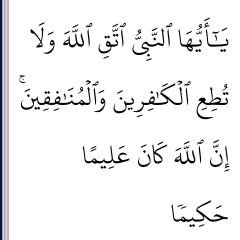 يَـٰٓأَيُّهَا ٱلنَّبِىُّ ٱتَّقِ ٱللَّهَ وَلَا
تُطِعِ ٱلْكَـٰفِرِينَ وَٱلْمُنَـٰفِقِينَ ۚ
إِنَّ ٱللَّهَ كَانَ عَلِيمًا
حَكِيمًا